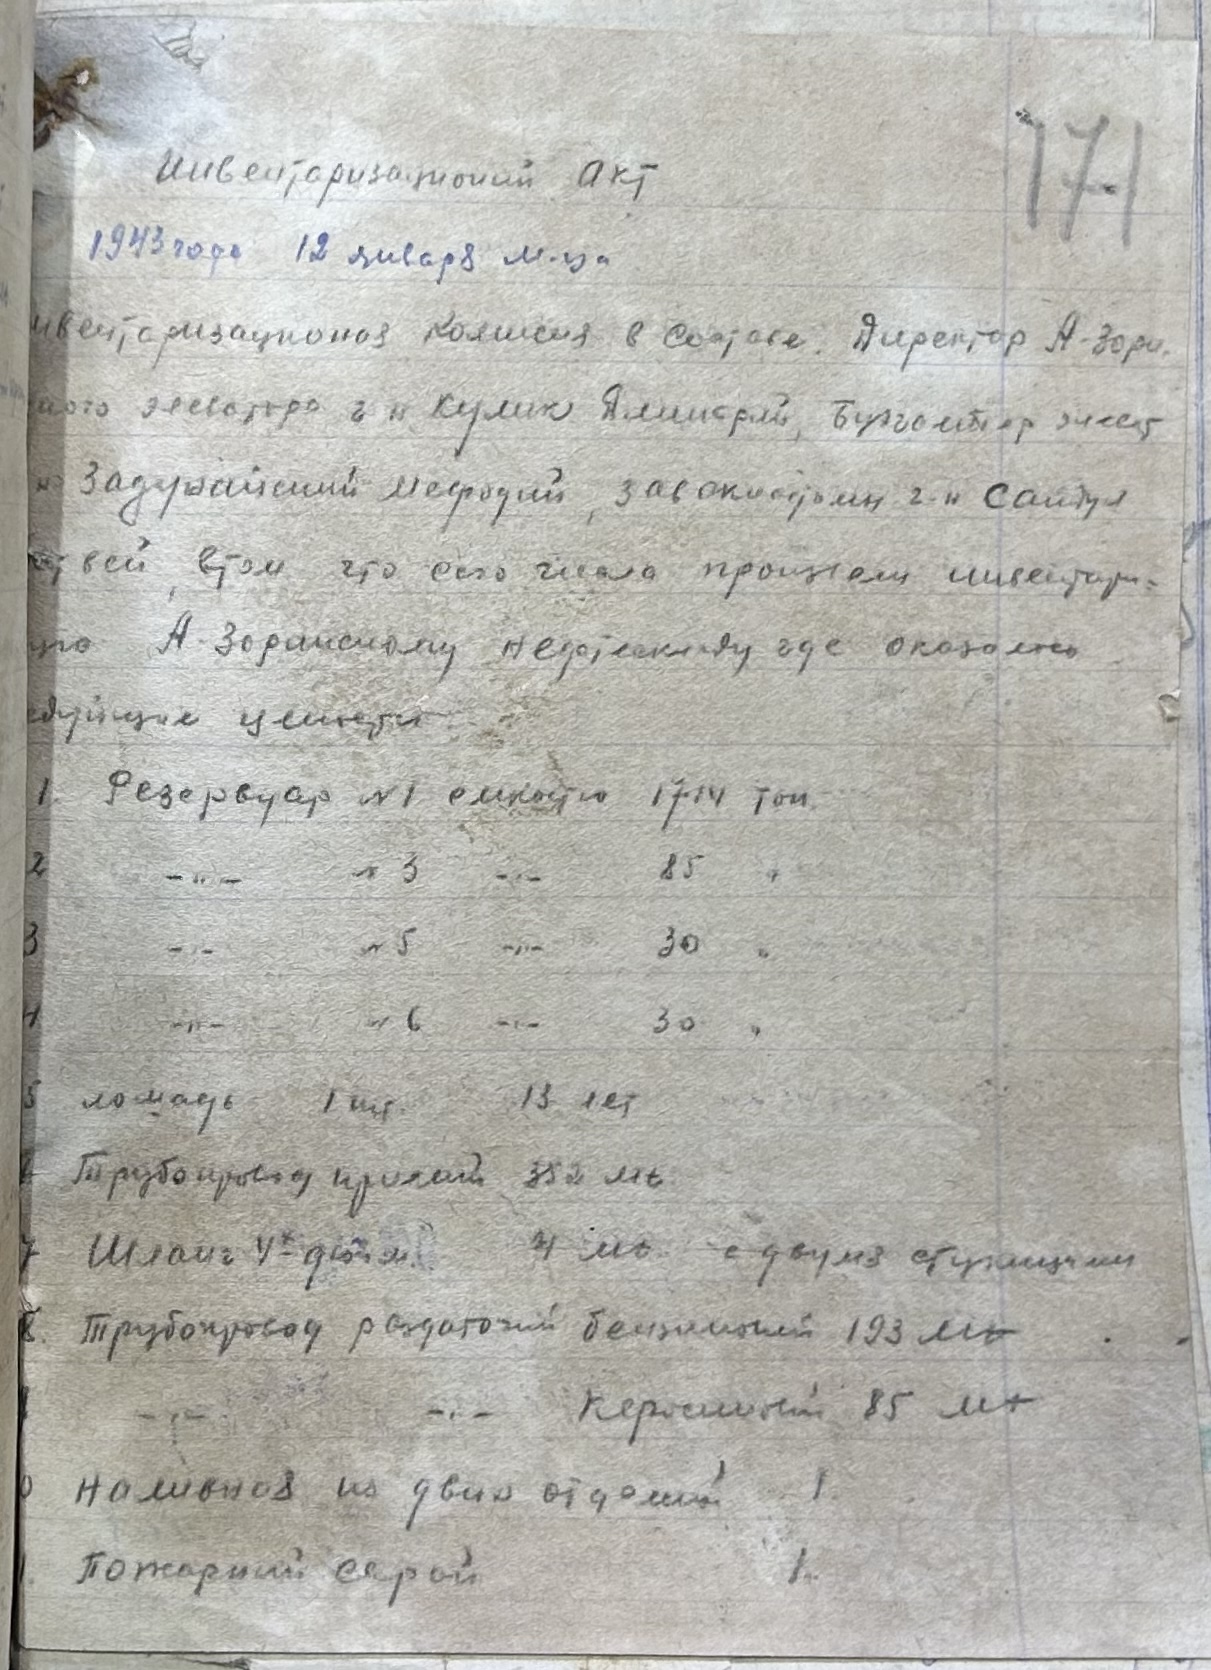 171
Инвентаризационий Акт
1943 года 12 января м-ца
нвентаризационая Комисия в составе. Директор А-Зори.
ного элеватора г-н Кулик Дмитрий, Бухгалтер элеват
Мефодий, г-н
твей, втом что сего числа произвели инвентари-
цию А-Зоринскому нефтескладу где оказалось
едующие ценности
1. Резервуар №1 емкостю 1714 тон
2 -"- №3 -"- 85 "
3 -"- №5 -"- 30 "
4 -"- №6 -"- 30 "
5 лошадь 1 шт. 13 лет
6 Трубопровод 352 мт.
7 Шланг 4х дюйм. 4 мт. с двумя
8. Трубопровод раздаточий бензиновий 193 мт
-"- -"- Керосиновий 85 мт
0 Наливная на двух отделий 1.
1. Пожарний сарай 1.